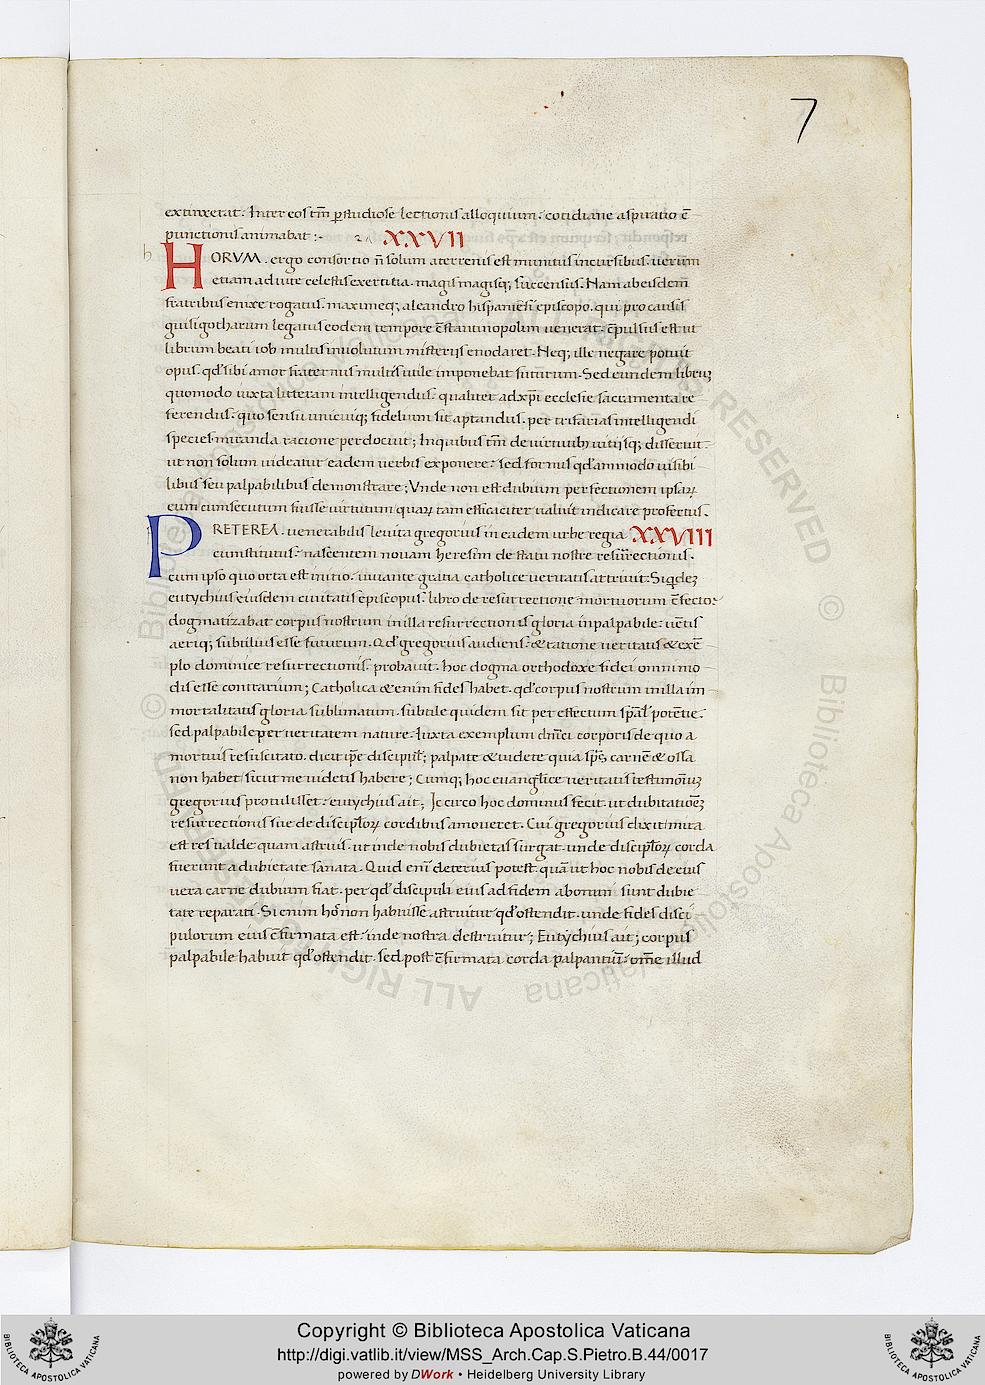 7
extinxerat. Inter eos tm̄ p studiose lectionis alloquium. cotidiane aspiratio c̄
punctionis animabat :-
XXVII
h
HORVM. ergo consortio n̄ solum a terrenis est munitus incursibus. uerum
etiam ad uite celestis exertitia. magis magisq; succensus. Nam ab eisdem
fratribus enixe rogatus. maximeq; a leandro hispaniensi episcopo. qui pro causis
guisigotharum legatus eodem tempore c̄stantinopolim uenerat. c̄pulsus est ut
librum beati iob multis inuolutum misterijs enodaret. Neq; ille negare potuit
opus. qd̓ sibi amor fraternus multis utile imponebat futurum. Sed eundem libruȝ
quomodo iuxta litteram intelligendus. qualiter ad xp̄i ecclesie sacramenta re
ferendus. quo sensu unicuiq; fidelium sit aptandus. per trifarias intelligendi
species miranda racione perdocuit; In quibus tm̄ de uirtutib; uitiisq; disseruit.
ut non solum uideatur eadem uerbis exponere. sed formis qd̓ammodo uisibi
libus seu palpabilibus demonstrare; Vnde non est dubium perfectionem ipsaꝝ
eum cunsecutum fuisse uirtutum quaꝝ tam efficaciter ualuit indicare profectus.
PRETEREA. uenerabilis leuita gregorius in eadem urbe regia
XXVIII
cunstitutus. nascentem nouam heresim de statu nostre resurrectionis.
cum ipso quo orta est initio. iuuante gratia catholice ueritatis attriuit. Siqdeȝ
eutychius eiusdem ciuitatis episcopus. libro de resurrectione mortuorum c̄fecto.
dogmatizabat corpus nostrum in illa resurrectionis gloria inpalpabile. uentis
aeriq; subtilius esse futurum. Qd̓ gregorius audiens. & ratione ueritatis & exē
plo dominice resurrectionis. probauit. hoc dogma orthodoxe fidei omnimo
dis esse contrarium; Catholica & enim fides habet. qd̓ corpus nostrum in illa in
mortalitatis gloria sublimatum. subtile quidem sit per effectum sp̄alis potentie.
sed palpabile per ueritatem nature. Iuxta exemplum dn̄ici corporis de quo a
mortuis resuscitato. dicit ip̄e discipul̓; palpate & uidete quia sp̄s carnē & ossa
non habet sicut me uidetis habere; Cumq; hoc euanglice ueritatis testimoniuȝ
gregorius protulisset. eutychius ait; Ic circo hoc dominus fecit. ut dubitationeȝ
resurrectionis sue de discipl̓oꝝ cordibus amoueret. Cui gregorius dixit mira
est res ualde quam astruis. ut inde nobis dubietas surgat. unde discipl̓oꝝ corda
fuerunt a dubietate sanata. Quid enī deterius potest. quā ut hoc nobis de eius
uera carne dubium fiat. per qd̓ discipuli eius ad fidem a bonum sunt dubie
tate reparati. Si enim non habuisse astruitur qd̓ ostendit. unde fides disci
pulorum eius c̄firmata est. inde nostra destruitur; Eutychius ait; corpus
palpabile habuit qd̓ ostendit. sed post c̄firmata corda palpantiū. om̄e illud
Copyright © Biblioteca Apostolica Vaticana
http://digi.vatlib.it/view/MSS_Arch.Cap.S.Pietro.B.44/0017
powered by DWork • Heidelberg University Library